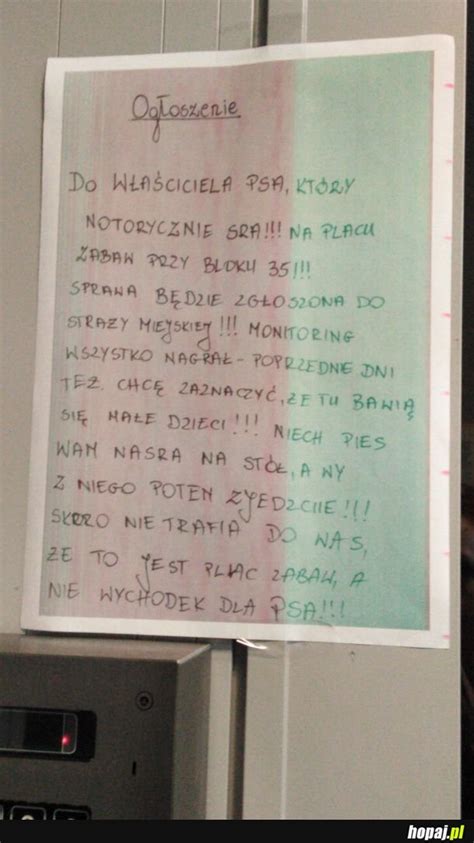 Ogłoszenie
DO WŁAŚCICIELA PSA, KTÓRY
NOTORYCZNIE SRA!!! NA PLACU
ZABAW PRZY BLOKU 35!!!
SPRAWA BĘDZIE ZGŁOSZONA DO
STRAŻY MIEJSKIEJ!!! MONITORING
WSZYSTKO NAGRAŁ - POPRZEDNIE DNI
TEŻ. CHCĘ ZAZNACZYĆ, ŻE TU BAWIĄ
SIĘ MAŁE DZIECI!!! NIECH PIES
WAM NASRA NA STÓŁ, A WY
Z NIEGO POTEM ZJEDZCIE!!!
SKORO NIE TRAFIA DO WAS,
ŻE TO JEST PLAC ZABAW, A
NIE WYCHODEK DLA PSA!!!
hopaj.pl